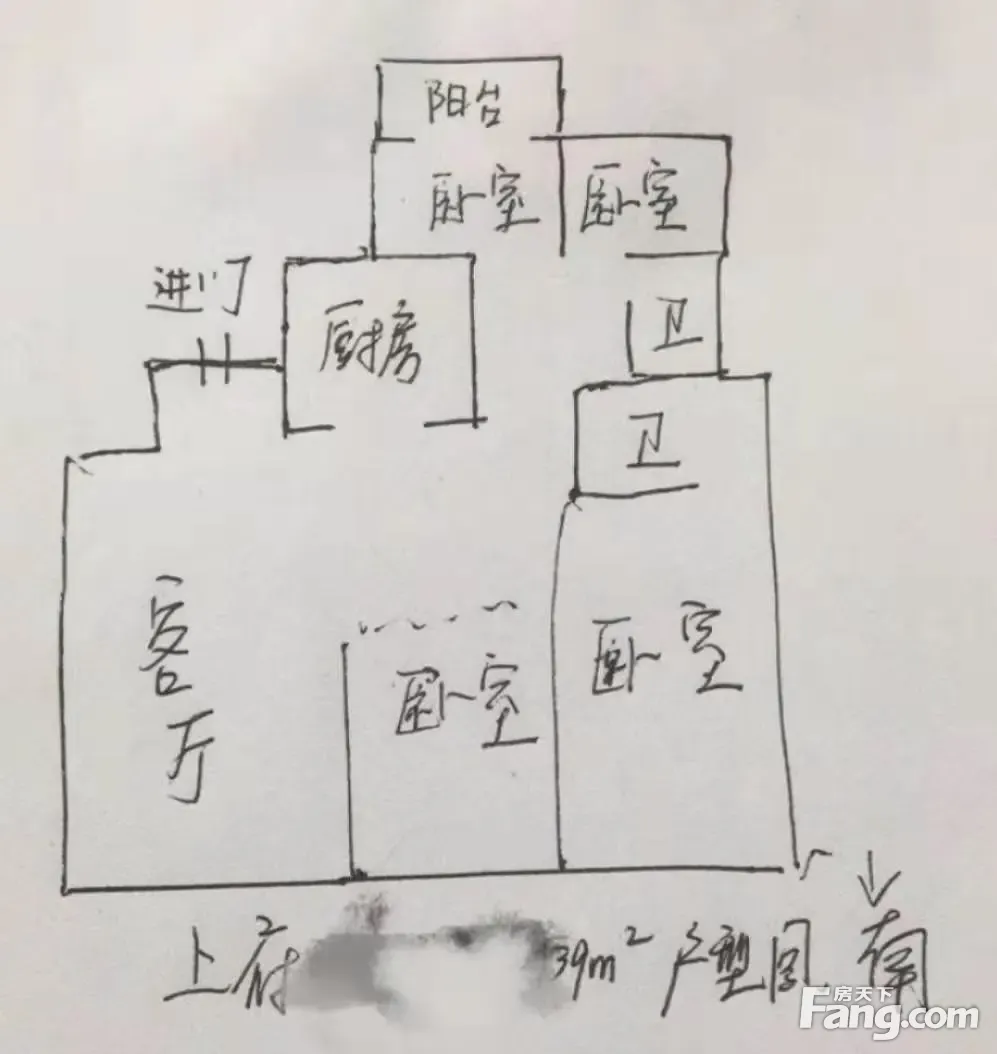 阳台
卧室
卧室
进门
厨房
卫
卫
客厅
卧室
卧室
上府 39m² 户型图 南
房天下
Fang.com